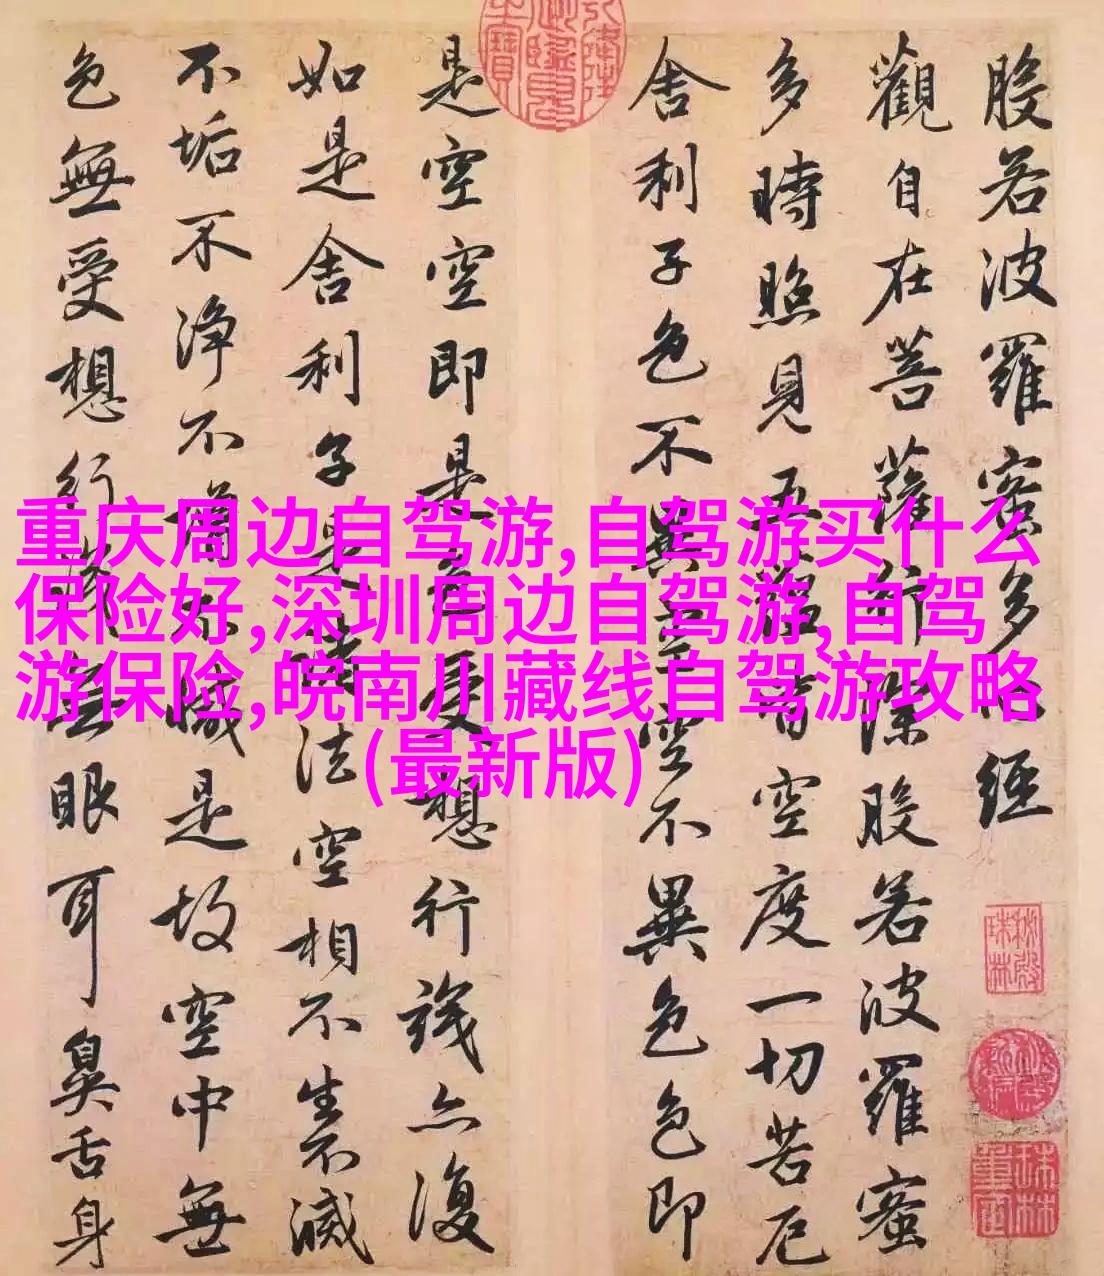 般若波羅蜜多心經
觀自在菩薩行深般若波羅蜜
多時照見五蘊皆空度一切苦厄
舍利子色不異空空不異色色即
是空空即是色受想行識亦復
如是舍利子是諸法空相不生不滅
不垢不淨不增不減是故空中無
色無受想行識無眼耳鼻舌身
秘殿珠林
珠林重定
重庆周边自驾游,自驾游买什么
保险好,深圳周边自驾游,自驾
游保险,皖南川藏线自驾游攻略
(最新版)